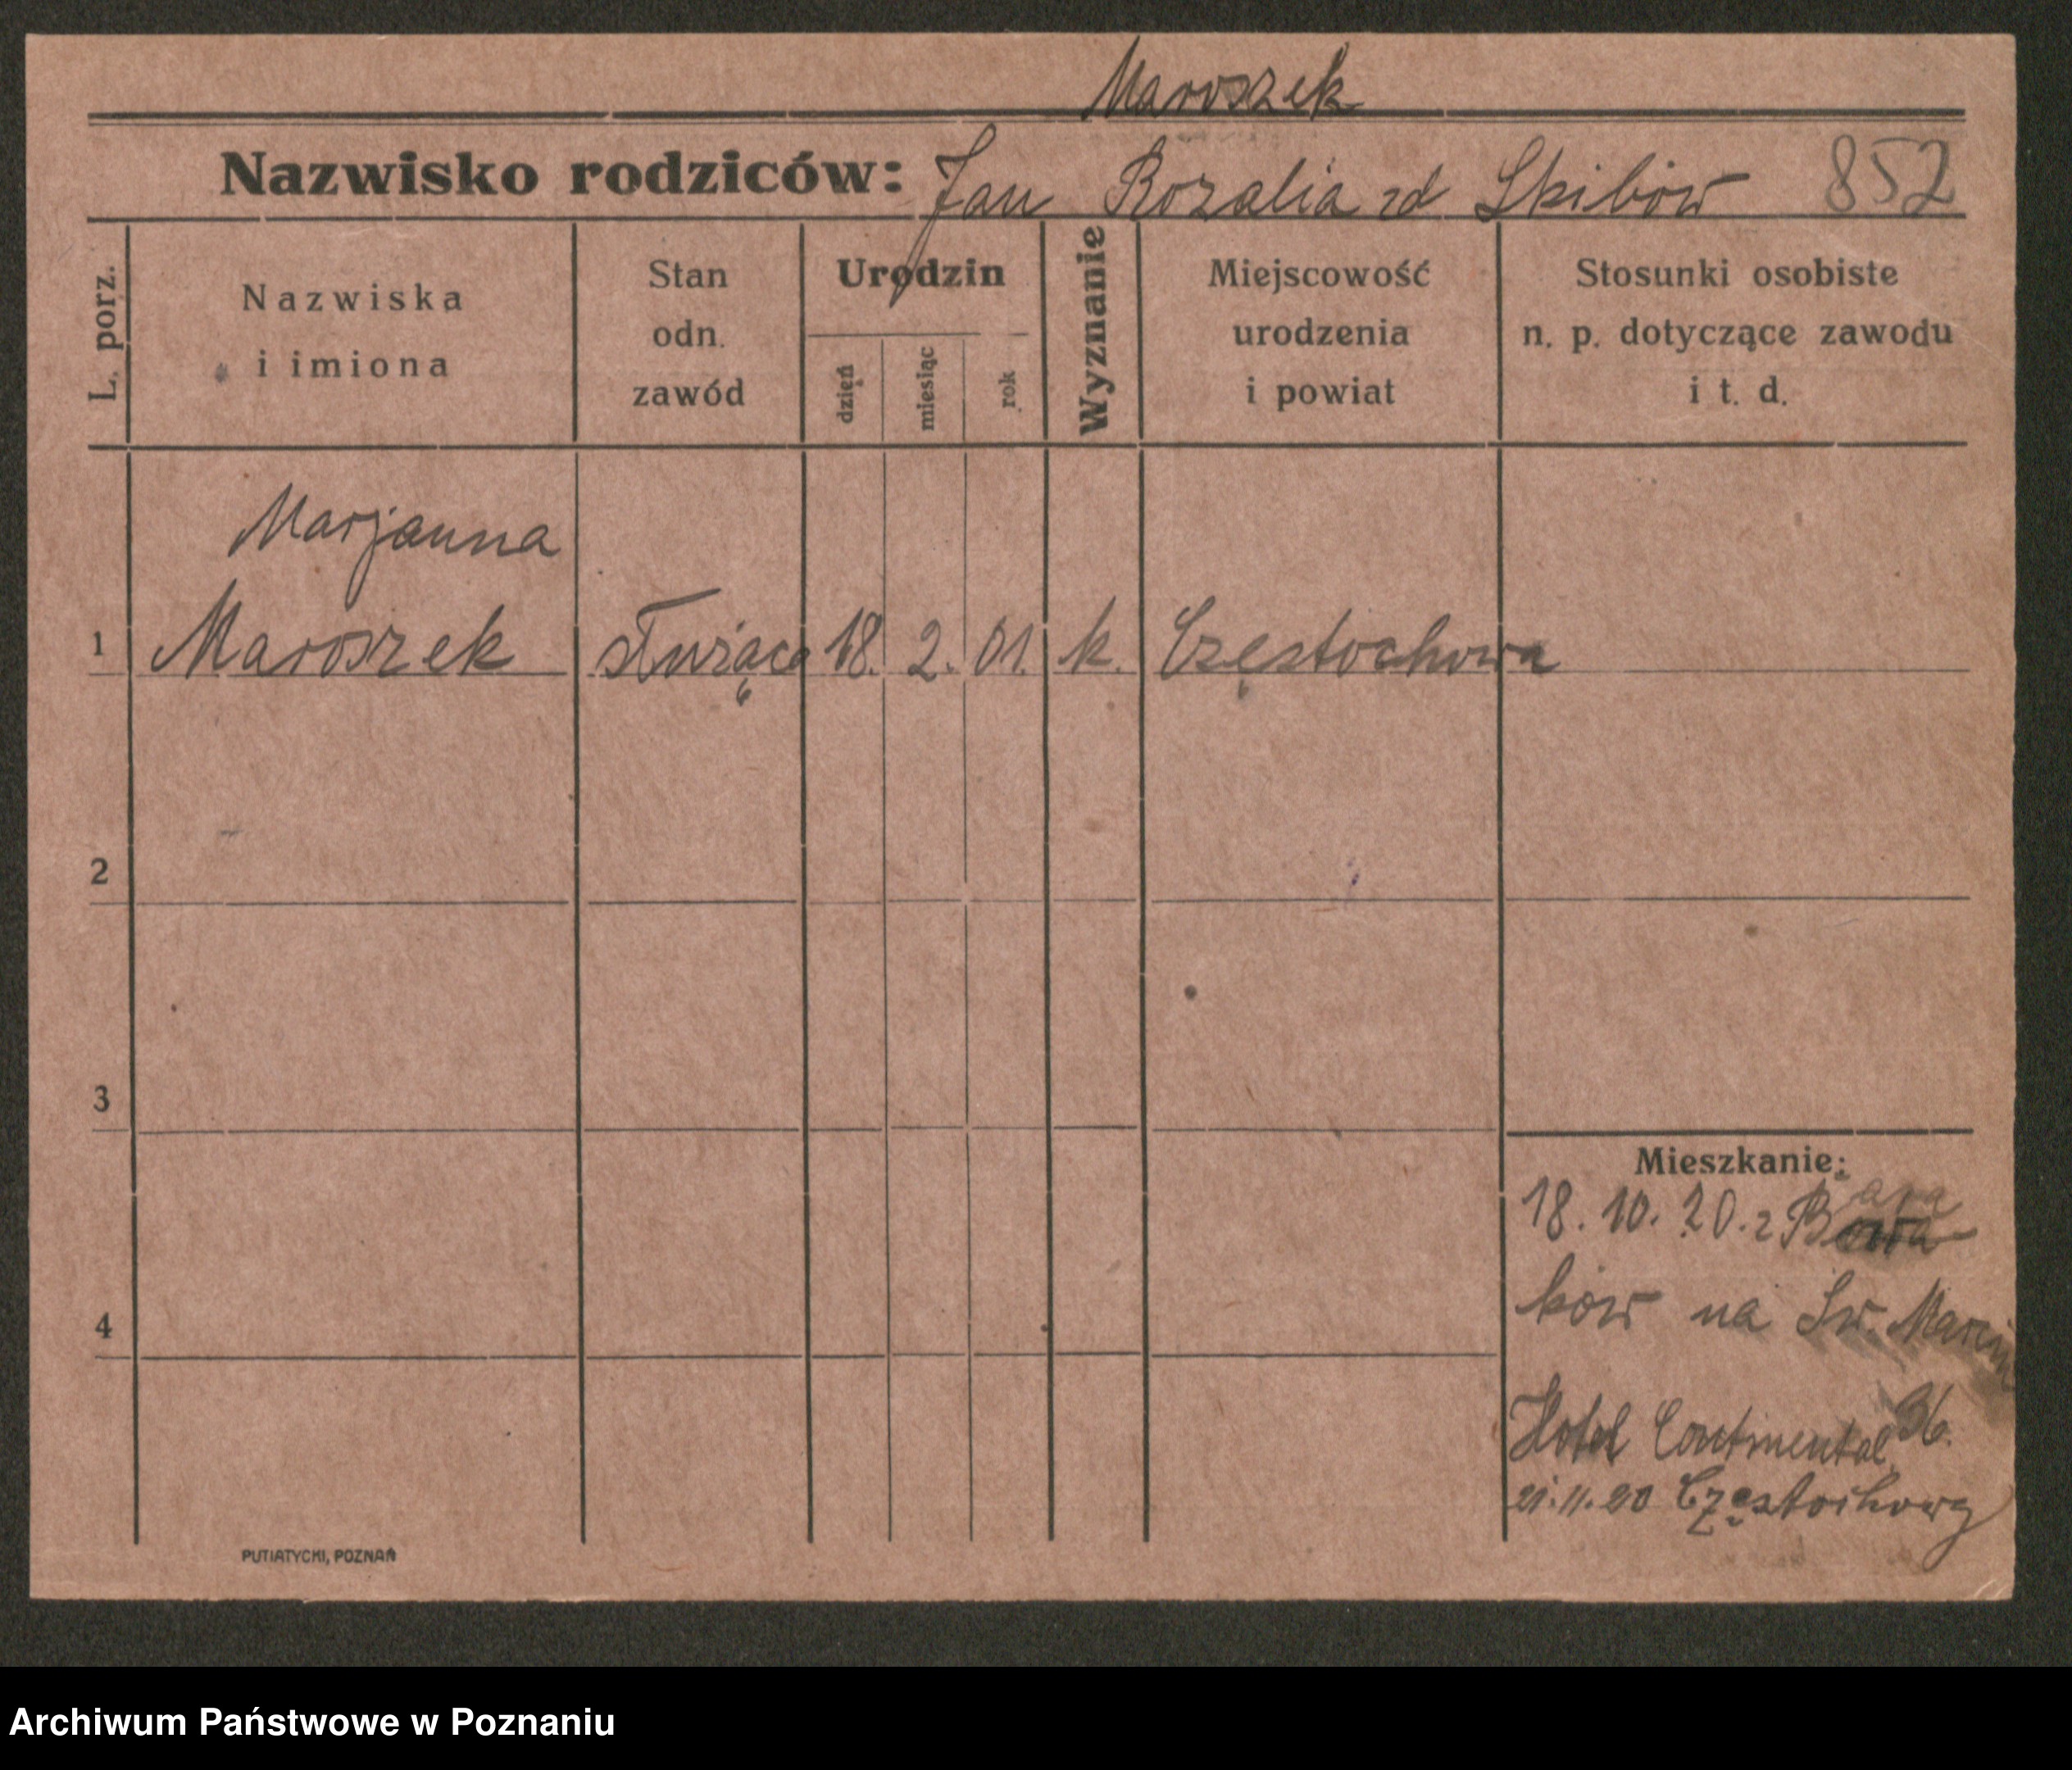 Maroszek
Nazwisko rodziców: Jan Rozalia zd Skibów 852
L. porz.
Nazwiska
i imiona
Stan
odn.
zawód
Urodzin
dzień
miesiąc
rok
Wyznanie
Miejscowość
urodzenia
i powiat
Stosunki osobiste
n. p. dotyczące zawodu
i t. d.
Marjanna
1 Maroszek służąca 18. 2. 01. k. Częstochowa
2
3
4
Mieszkanie:
18. 10. 20. z Bara
ków na Św. Marcin
Hotel Continental 36.
21.11.20 Częstochowy
PUTIATYCKI, POZNAŃ
Archiwum Państwowe w Poznaniu